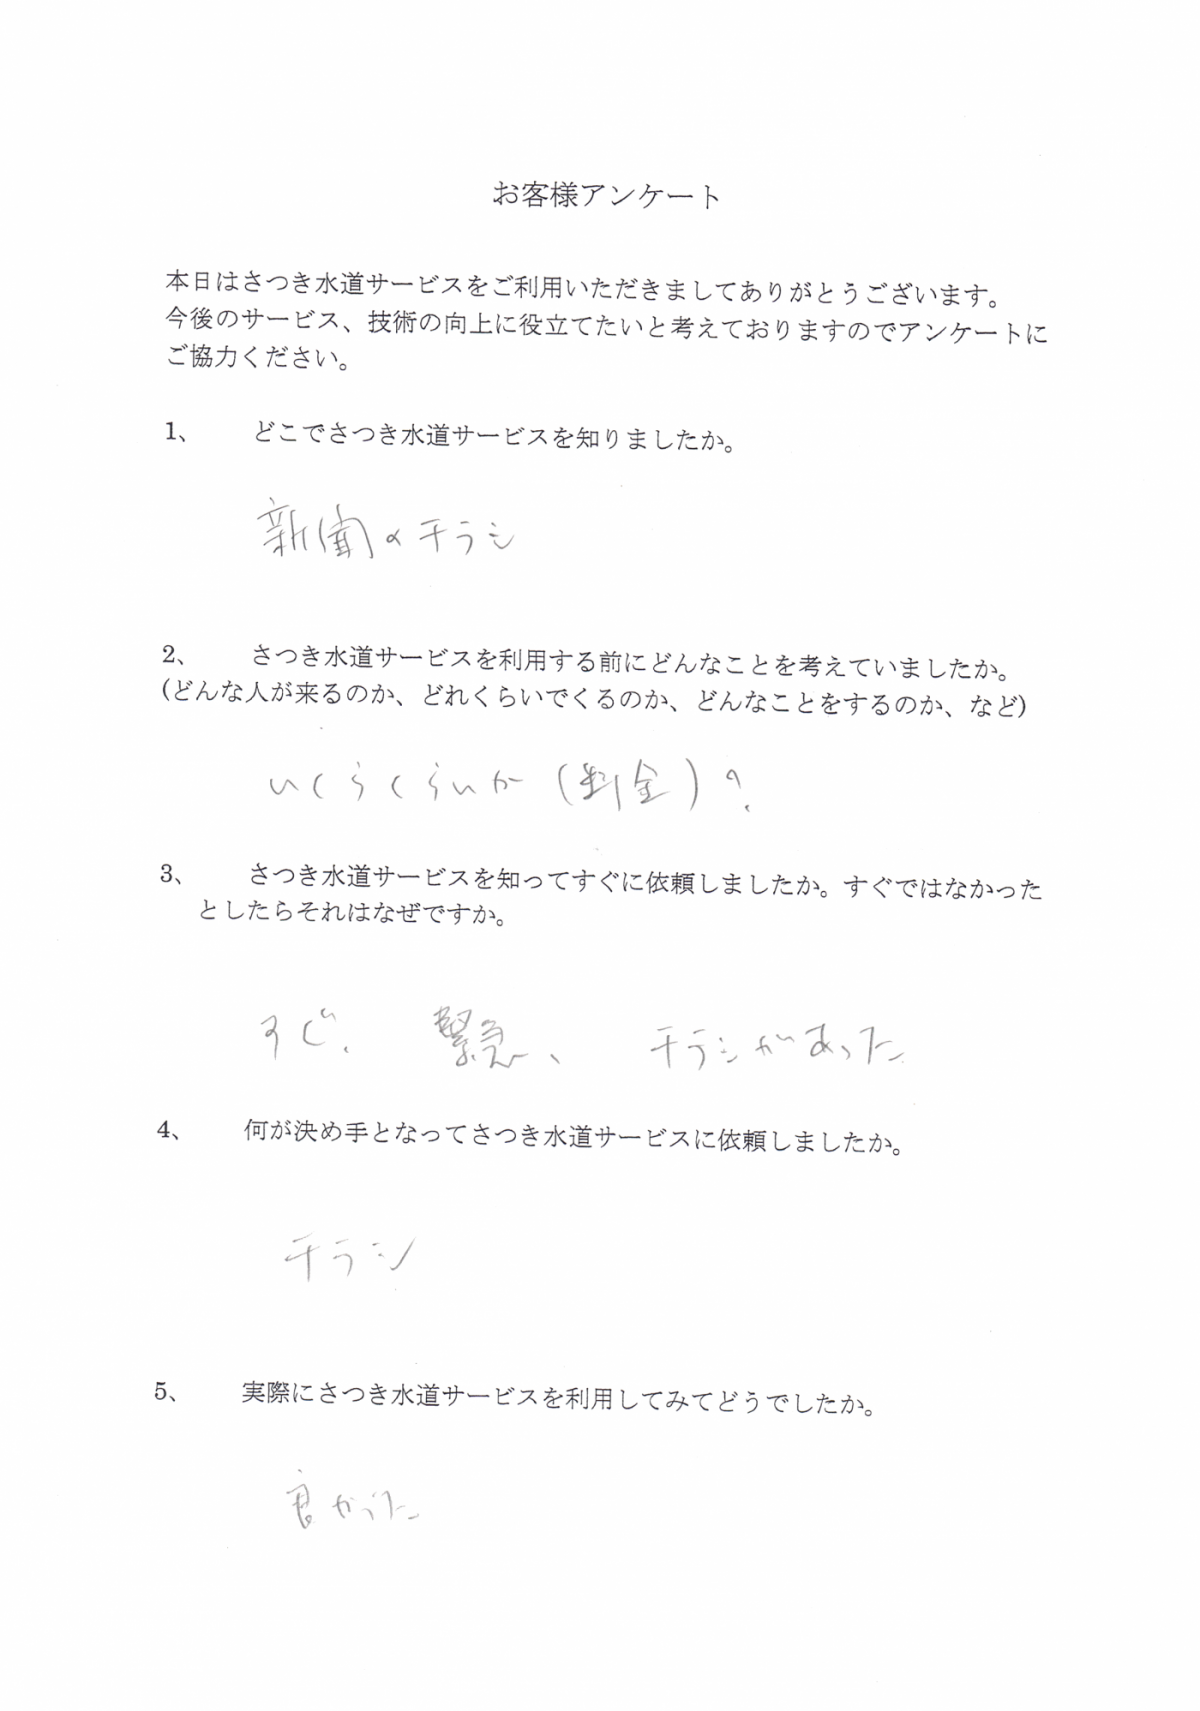 お客様アンケート
本日はさつき水道サービスをご利用いただきましてありがとうございます。
今後のサービス、技術の向上に役立てたいと考えておりますのでアンケートに
ご協力ください。
1、 どこでさつき水道サービスを知りましたか。
新聞のチラシ
2、 さつき水道サービスを利用する前にどんなことを考えていましたか。
(どんな人が来るのか、どれくらいでくるのか、どんなことをするのか、など)
いくらくらいか(料金)?
3、 さつき水道サービスを知ってすぐに依頼しましたか。すぐではなかった
としたらそれはなぜですか。
すぐ、 緊急、 チラシがあった
4、 何が決め手となってさつき水道サービスに依頼しましたか。
チラシ
5、 実際にさつき水道サービスを利用してみてどうでしたか。
良かった